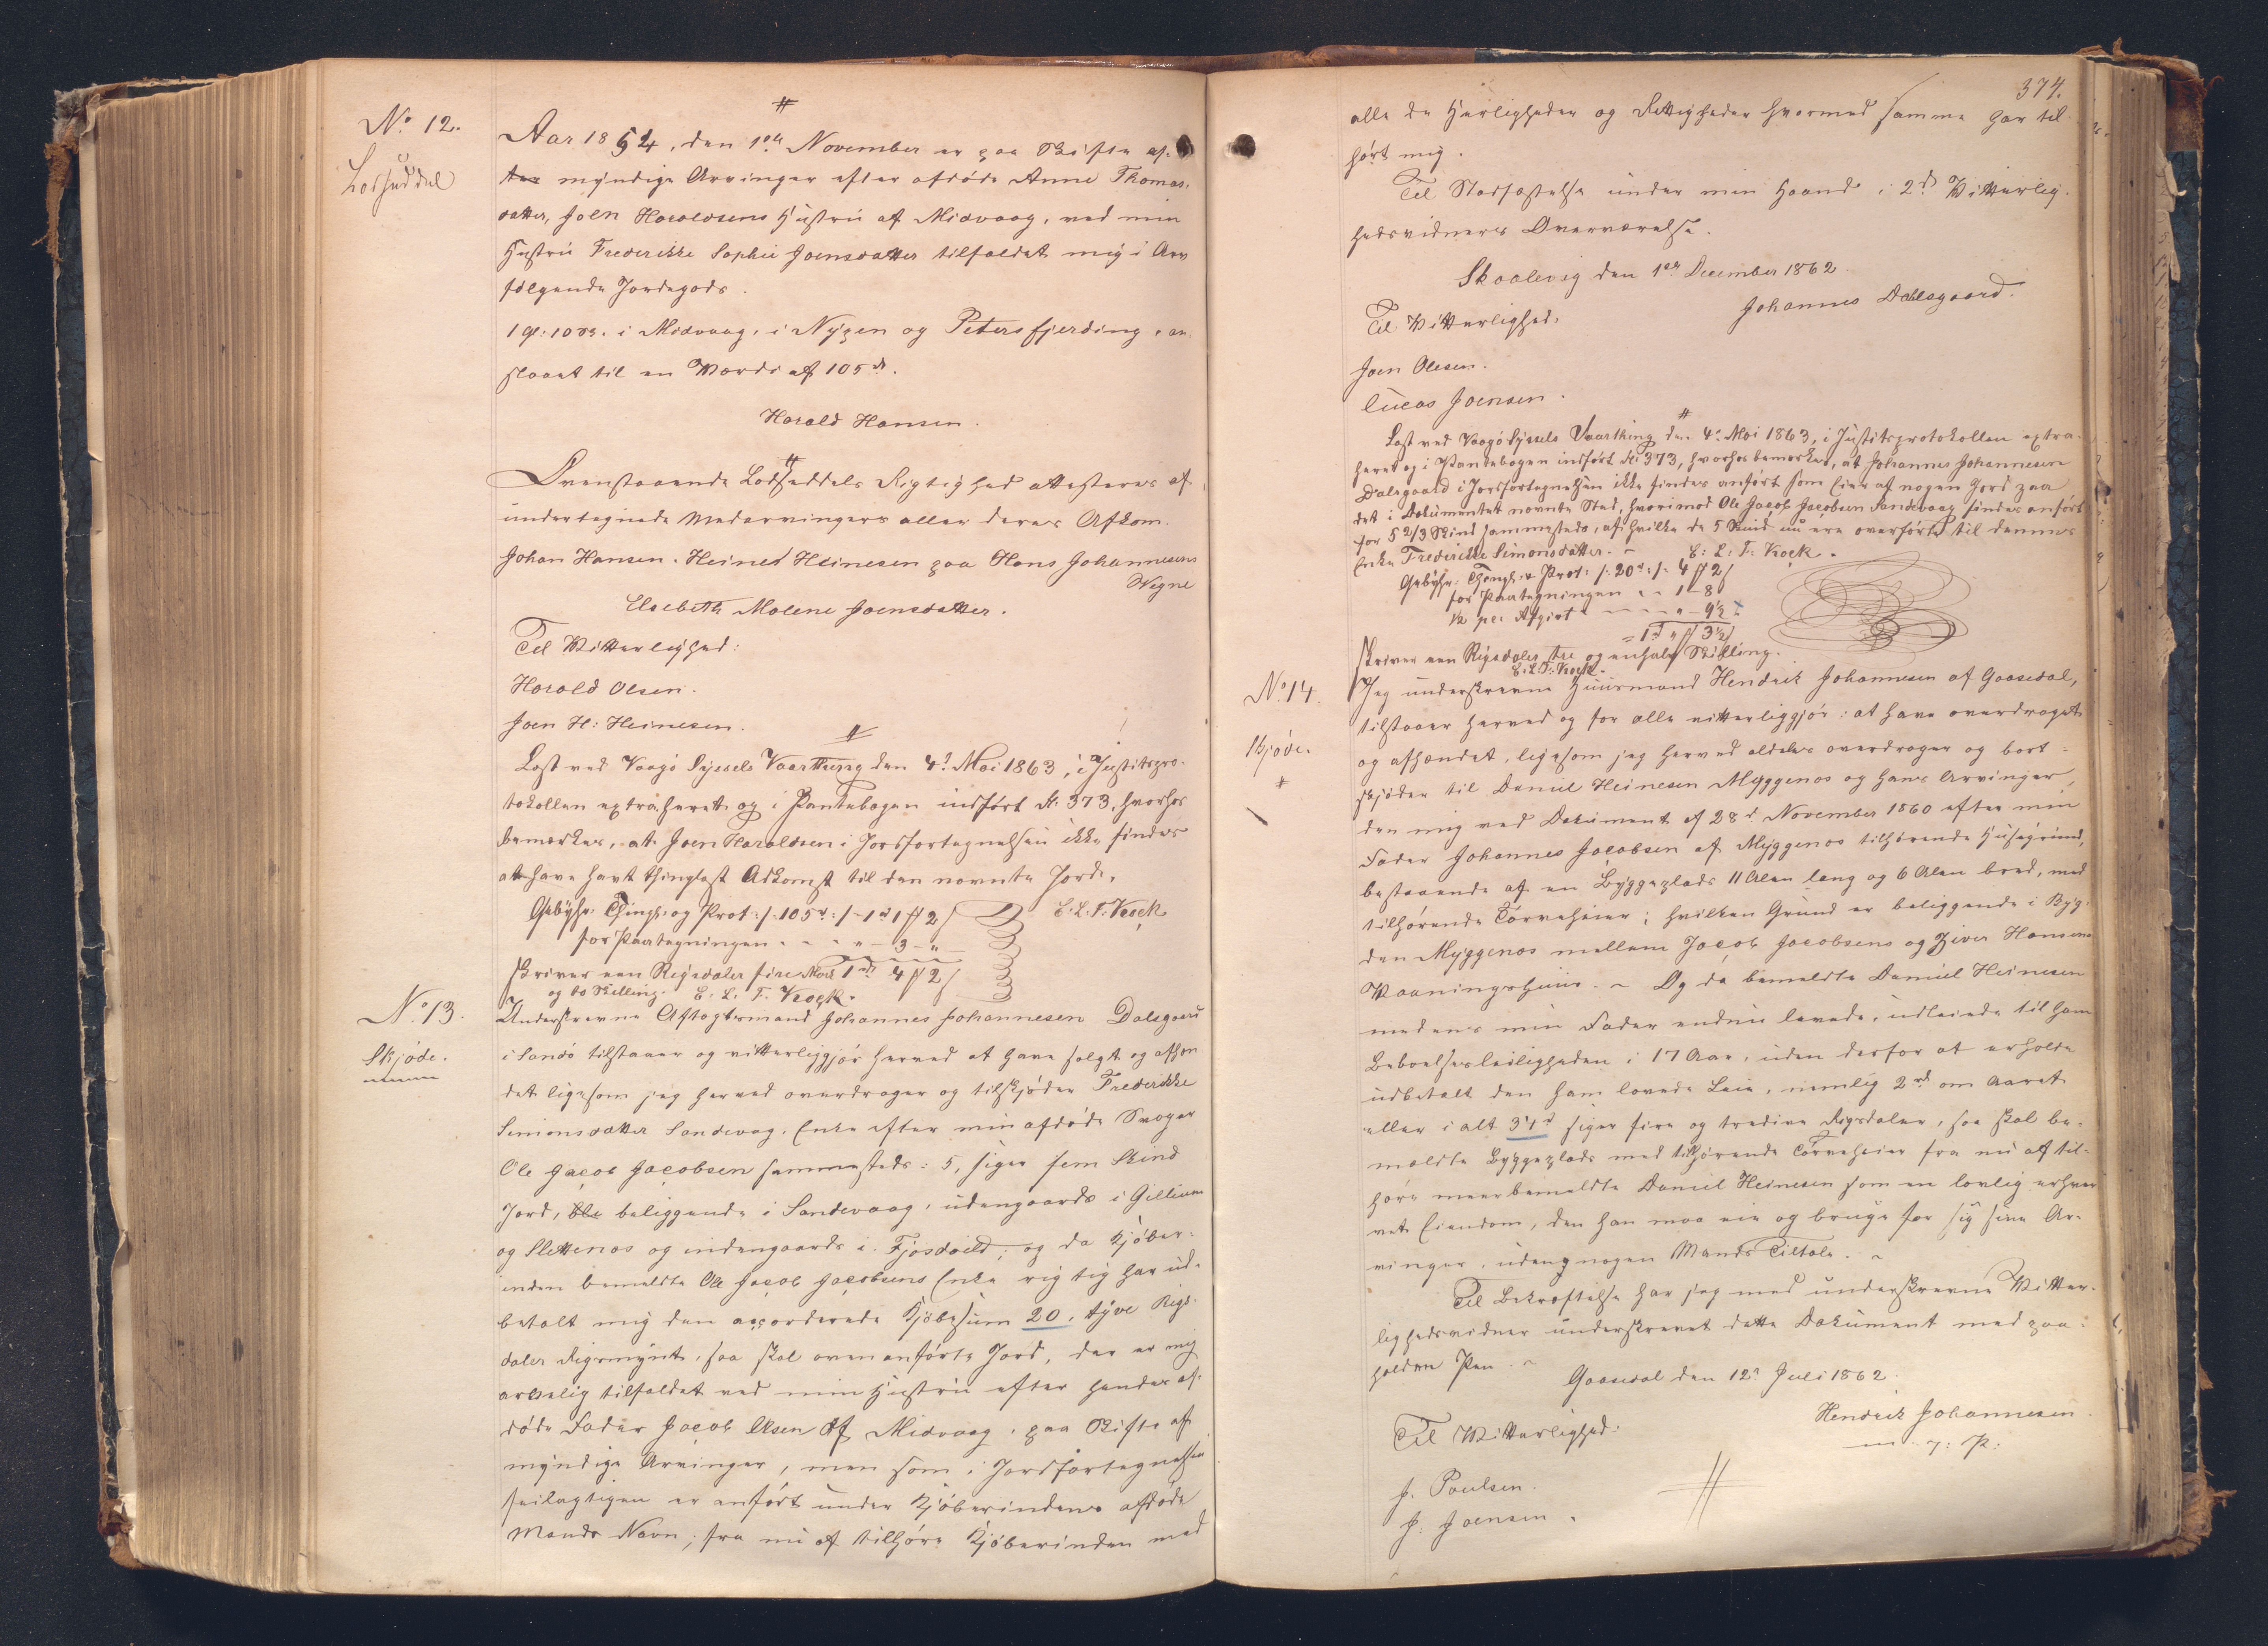 No. 12.
Lodseddel
Aar 1854, den 1ste November er paa Skifte af
myndige Arvinger efter afdöde Anne Thomas-
datter, Joen Haraldsens Hustrü af Midvaag, ved min
Hüstrü Frederikke Sophie Joensdatter tilfaldet mig i Arv
følgende Jordegods.
1 gl: 10 sk. i Midvaag, i Nÿgen og Petersfjerding, an-
slaaet til en Værdi af 105 rd.
Harald Hansen.
Ovenstaaende Lodseddels Rigtighed attesteres af
undertegnede Medarvinger eller deres Afkom.
Johan Hansen. Heine Heinesen paa Hans Johannesens
Vegne
Elsebeth Malene Joensdatter.
Til Vitterlighed:
Harald Olsen.
Joen H: Heinesen.
Læst ved Vaagö Sÿssels Vaarthing den 4de Mai 1863, i Jüstitspro-
tokollen extraheret og i Pantebogen indfört fol: 373, hvorhos
bemærkes, at Joen Haraldsen i Jordfortegnelsen ikke findes
at have havt thinglæst Adkomst til den nævnte Jord.
Gebÿhr: Thingl: og Prot: /: 105 rd :/ - 1 rd 1 ß 2
E: L: F: Krock
for Paategningen - - - " - 3 - "
skriver een Rigsdaler fire Mark 1 rd 4 ß 2
og to Skilling. E: L: F: Krock.
No. 13.
Skjöde.
Underskrevne Aftægtsmand Johannes Johannesen Dalsgaard
i Sandö tilstaaer og vitterliggjör herved at have solgt og afhæn
det ligesom jeg herved overdrager og tilskjöder Frederikke
Simonsdatter Sandevaag, Enke efter min afdöde Svoger
Ole Jacob Jacobsen sammesteds: 5, siger fem Skind
Jord, beliggende i Sandevaag, udengaards i Gillium
og Slettenæs og indengaards i Fjosdeild; og da Kjöber-
inden bemeldte Ole Jacob Jacobsens Enke rigtig har ud-
betalt mig den accorderede Kjöbesüm 20, tÿve Rigs-
daler Rigsmÿnt, saa skal ovenanförte Jord, der er mig
arvelig tilfaldet ved min Hüstrü efter hendes af-
döde Fader Jacob Olsen af Midvaag, paa Skifte af
mÿndige Arvinger, men som i Jordfortegnelsen
feilagtigen er anfört under Kjöberindens afdöde
Mands Navn; fra nü af tilhöre Kjöberinden med
374.
alle de Herligheder og Rettigheder hvormed samme har til-
hört mig.
Til Stadfæstelse ünder min Haand i 2de Vitterlig-
hedsvidners Overværelse.
Skaalevig den 1ste December 1862.
Johannes Dalsgaard.
Til Vitterlighed:
Joen Olesen.
Lucas Joensen.
Læst ved Vaagö Sÿssels Vaarthing den 4de Mai 1863, i Jüstitsprotokollen extra-
heret og i Pantebogen indfört fol: 373, hvorhos bemærkes, at Johannes Johannesen
Dalsgaard i Jordfortegnelsen ikke findes anfört som Eier af nogen Jord paa
det i Dokümentet nævnte Sted, hvorimod Ole Jacob Jacobsen Sandevaag findes anfört
for 5 2/3 Skind sammesteds, af hvilke de 5 Skind nü ere overförte til dennes
Enke Frederikke Simonsdatter. E: L: F: Krock.
Gebÿhr: Thingl: & Prot: /: 20 rd :/ 4 ß 2
for Paategningen - - 1 - 8
1/2 pct Afgivt - - - " - 9 1/2
= 1 rd " ß 3 1/2
skriver een Rigsdaler tre og enhalv Skilling.
E: L: F: Krock.
No. 14.
Skjöde.
Jeg underskrevne Hüüsmand Hendrik Johannesen af Gaasedal,
tilstaaer herved og for alle vitterliggjör: at have overdraget
og afhændet, ligesom jeg herved aldeles overdrager og bort-
skjöder til Daniel Heinesen Mÿggenæs og hans Arvinger,
den mig ved Dokument af 28de November 1860 efter min
Fader Johannes Jacobsen af Mÿggenæs tilhörende Hüsegründ,
bestaaende af en Bÿggeplads 11 Alen lang og 6 Alen bred, med
tilhörende Törveheier; hvilken Gründ er beliggende i Bÿg-
den Mÿggenæs mellem Jacob Jacobsens og Ziver Hansens
Vaaningshüüs. - Og da bemeldte Daniel Heinesen
medens min Fader endnü levede, üdleiede til ham
Beboelsesleiligheden i 17 Aar, üden derfor at erholde
üdbetalt den ham lovede Leie, nemlig 2 rd om Aaret
eller i alt 34 rd siger fire og tredive Rigsdaler, saa skal be-
meldte Bÿggeplads med tilhörende Törveheier fra nü af til-
höre meerbemeldte Daniel Heinesen som en lovlig erhver
vet Eiendom, den han maa eie og brüge for sig sine Ar-
vinger, üden nogen Mands Tiltale. -
Til Bekræftelse har jeg med ünderskrevne Vitter-
lighedsvidner ünderskrevet dette Doküment med paa-
holden Pen. -
Gaasedal den 12te Jüli 1862.
Hendrik Johannesen
m: f: P:
Til Vitterlighed:
J. Poulsen.
J: Joensen.